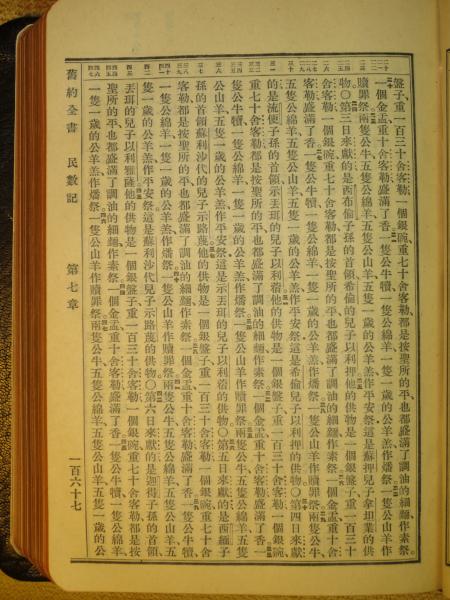 盤子重一百三十舍客勒、一個銀碗重七十舍客勒都是按聖所的平、也都盛滿了調油的細麵作素祭。
一個金盂重十舍客勒盛滿了香。一隻公牛犢、一隻公綿羊、一隻一歲的公羊羔作燔祭。一隻公山羊作
贖罪祭。兩隻公牛、五隻公綿羊、五隻公山羊、五隻一歲的公羊羔作平安祭這是蘇押兒子拿坦業的供
物。○第三日來獻的是西布倫子孫的首領希倫的兒子以利押。他的供物是一個銀盤子、重一百三十
舍客勒、一個銀碗重七十舍客勒都是按聖所的平、也都盛滿了調油的細麵作素祭。一個金盂重十舍
客勒盛滿了香。一隻公牛犢、一隻公綿羊、一隻一歲的公羊羔作燔祭。一隻公山羊作贖罪祭。兩隻公牛、
五隻公綿羊、五隻公山羊、五隻一歲的公羊羔作平安祭這是希倫兒子以利押的供物。○第四日來獻
的是流便子孫的首領示丟珥的兒子以利蓿。他的供物是一個銀盤子、重一百三十舍客勒、一個銀碗
重七十舍客勒都是按聖所的平、也都盛滿了調油的細麵作素祭。一個金盂重十舍客勒盛滿了香。一
隻公牛犢、一隻公綿羊、一隻一歲的公羊羔作燔祭。一隻公山羊作贖罪祭。兩隻公牛、五隻公綿羊、五隻
公山羊、五隻一歲的公羊羔作平安祭這是示丟珥的兒子以利蓿的供物。○第五日來獻的是西緬子
孫的首領蘇利沙代的兒子示路蔑。他的供物是一個銀盤子、重一百三十舍客勒、一個銀碗重七十舍
客勒都是按聖所的平、也都盛滿了調油的細麵作素祭。一個金盂重十舍客勒盛滿了香。一隻公牛犢、
一隻公綿羊、一隻一歲的公羊羔作燔祭。一隻公山羊作贖罪祭。兩隻公牛、五隻公綿羊、五隻公山羊、五
隻一歲的公羊羔作平安祭這是蘇利沙代兒子示路蔑的供物。○第六日來獻的是迦得子孫的首領
丟珥的兒子以利雅薩。他的供物是一個銀盤子、重一百三十舍客勒、一個銀碗重七十舍客勒都是按
聖所的平、也都盛滿了調油的細麵作素祭。一個金盂重十舍客勒盛滿了香。一隻公牛犢、一隻公綿羊、
一隻一歲的公羊羔作燔祭。一隻公山羊作贖罪祭。兩隻公牛、五隻公綿羊、五隻公山羊、五隻一歲的公
舊約全書 民數記 第七章 一百六十七